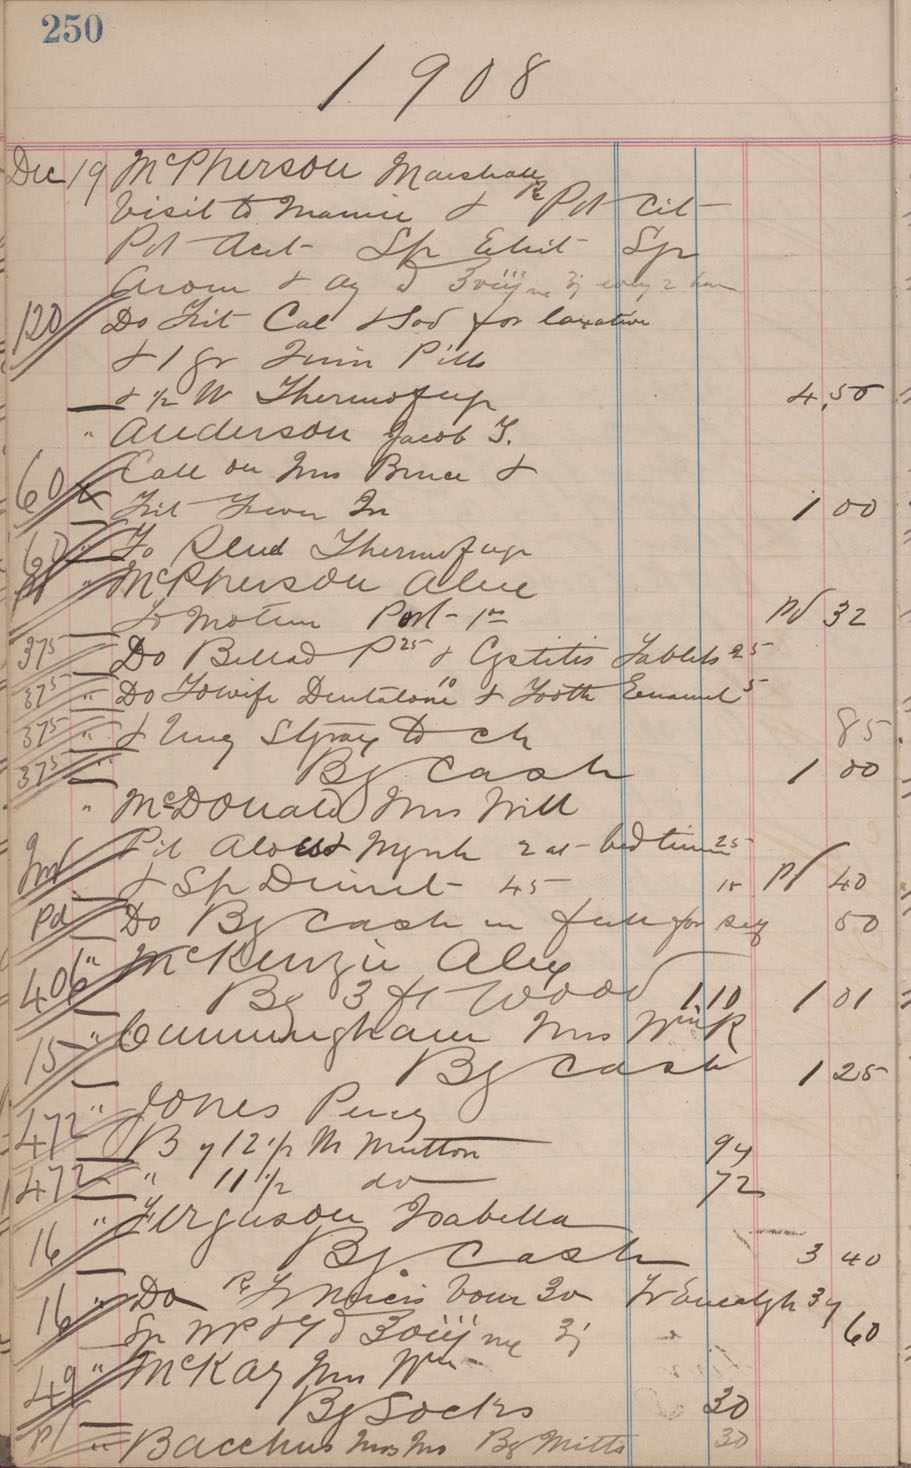 250
1908
Dec 19 McPherson Marshall
Visit to Mamie & Rx Pot Cit
Pot Acet Sp Ethit Sp
Arom & Aq every 2 hrs
120 Do Trit Cal & Sod for laxative
& 1 gr Quin Pills
& 1/2 lb Thermofuge 4.50
" Anderson Jacob T.
Call on Mrs Bruce &
60 Trit Fever 1 00
60 " To Thermofuge
Pd " McPherson Alex
Pd 32
375 Do Bellad P 25 & Cystitis Tablets 25
375 " Do To wife Dentalone 10 & Tooth Enamel 5
375 " & Ung to ch 85
375 " By Cash 1 00
" McDonald Mrs Will
Pil Aloes & Myrrh 2 at bedtime 25
& Sp 45 15 Pd 40
Pd Do By Cash in full for 50
406 " McKenzie Alex
By 3 ft Wood 110 1 01
15 " Cunningham Mrs Wm R
By Cash 1 25
472 " Jones Percy
By 12 1/2 lb Mutton 94
472 " 11 1/2 do 72
" Ferguson Isabella
16 By Cash 3 40
16 " Do Rx Tr Nucis Vom Tr Eucalyph
60
49 " McKay Mrs Wm
By Socks 30
Pd " Bacchus Mrs By Mitts 30